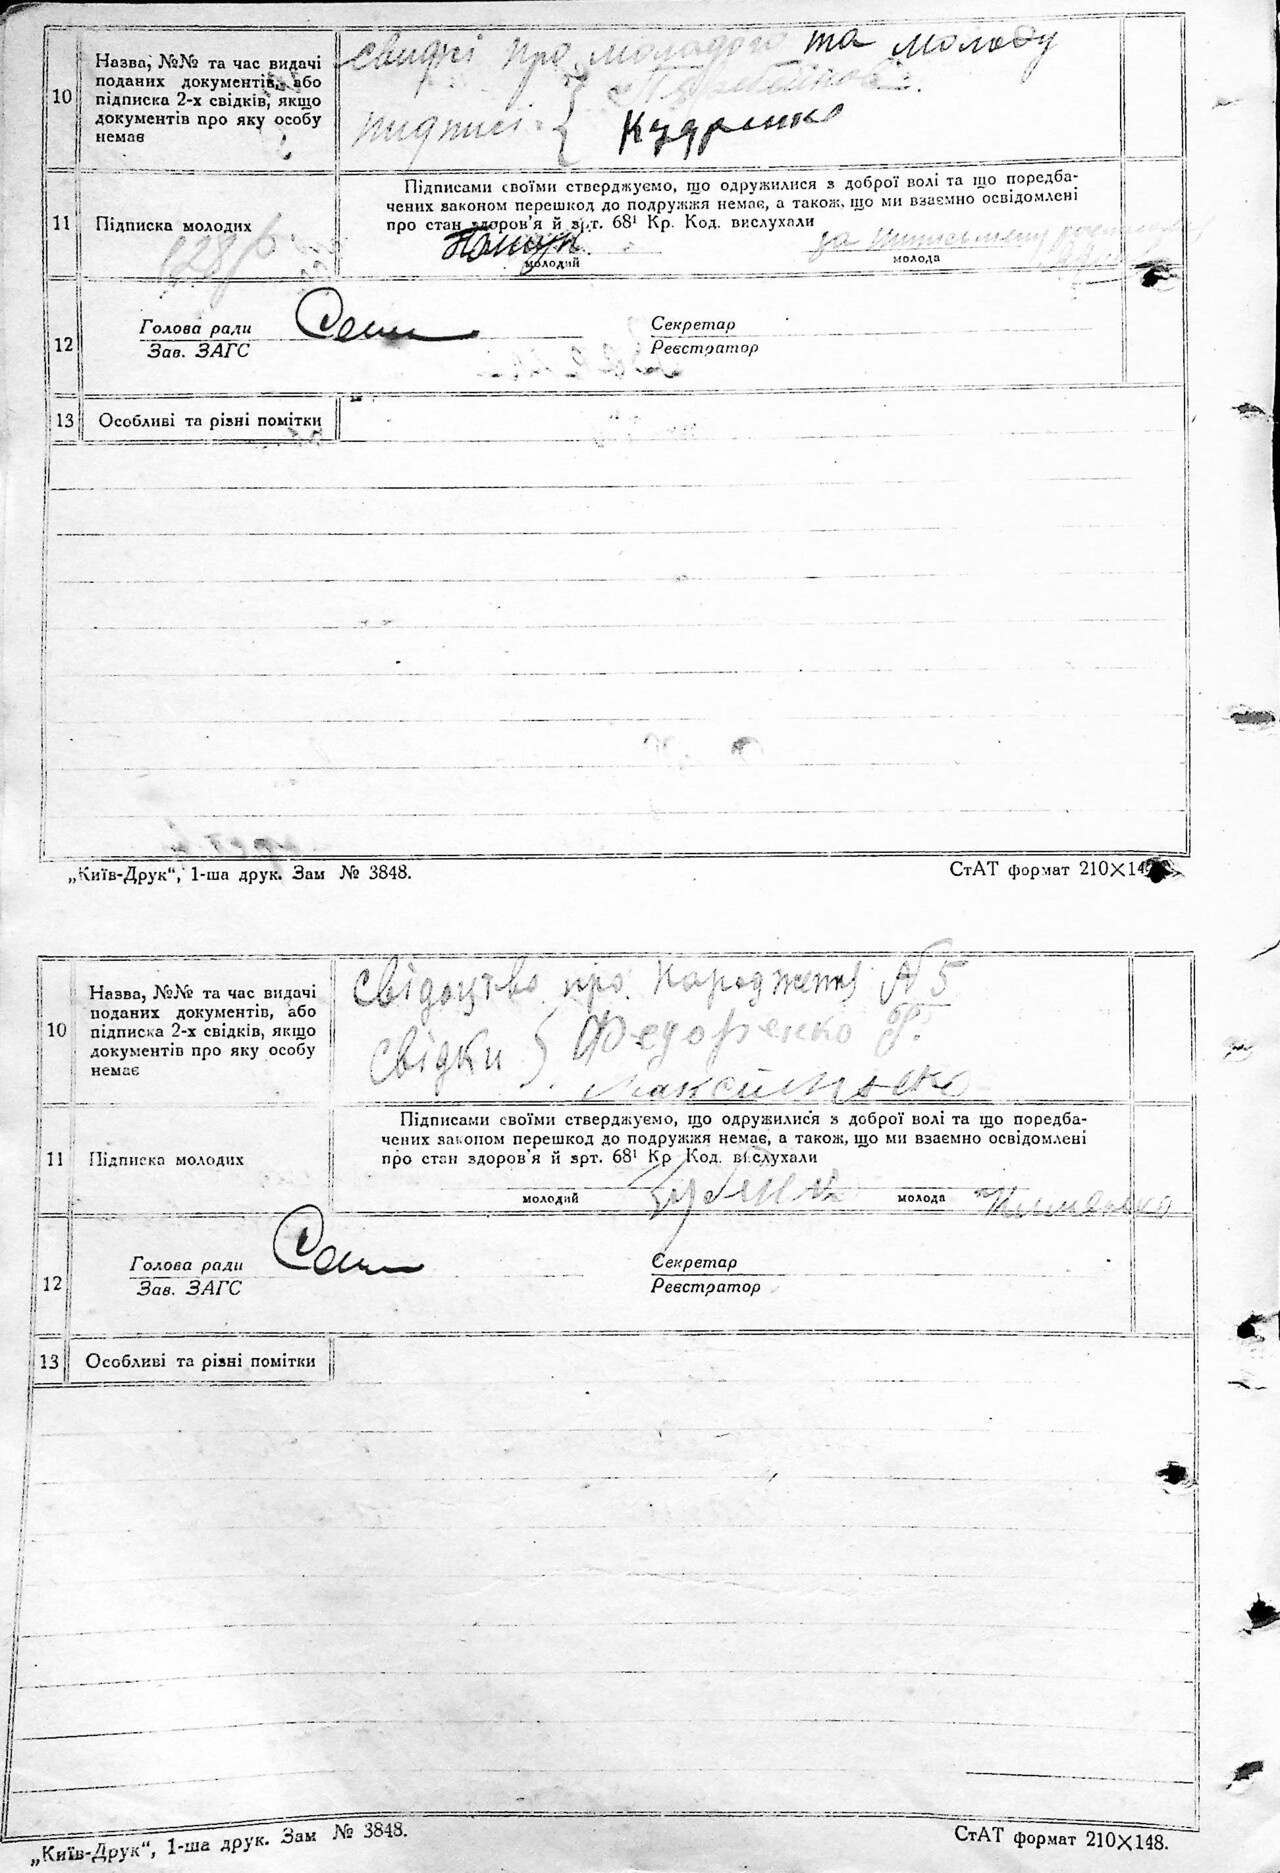 10
Назва, №№ та час видачі
поданих документів, або
підписка 2-х свідків, якщо
документів про яку особу
немає
свидкі про молодого та молоду
підписі
Кудренко
11
Підписка молодих
Підписами своїми стверджуємо, що одружилися з доброї волі та що поредба-
чених законом перешкод до подружжя немає, а також, що ми взаємно освідомлені
про стан здоров'я й арт. 68¹ Кр. Код. вислухали
молодий
молода
12
Голова ради
Секретар
Зав. ЗАГС
Реєстратор
13
Особливі та різні помітки
„Київ-Друк“, 1-ша друк. Зам № 3848.
СтАТ формат 210×148.
10
Назва, №№ та час видачі
поданих документів, або
підписка 2-х свідків, якщо
документів про яку особу
немає
Свідоцтво про народження №5
Свідки Федоренко
11
Підписка молодих
Підписами своїми стверджуємо, що одружилися з доброї волі та що поредба-
чених законом перешкод до подружжя немає, а також, що ми взаємно освідомлені
про стан здоров'я й зрт. 68¹ Кр Код. вислухали
молодий
молода
12
Голова ради
Секретар
Зав. ЗАГС
Реєстратор
13
Особливі та різні помітки
„Київ-Друк“, 1-ша друк. Зам № 3848.
СтАТ формат 210×148.